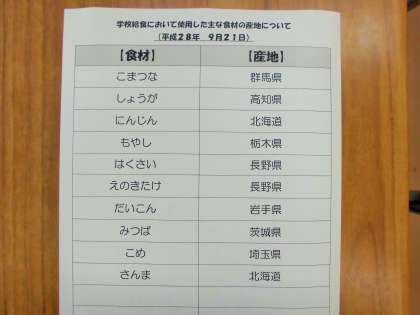 学校給食において使用した主な食材の産地について
(平成28年 9月21日)
【食材】 【産地】
こまつな 群馬県
しょうが 高知県
にんじん 北海道
もやし 栃木県
はくさい 長野県
えのきたけ 長野県
だいこん 岩手県
みつば 茨城県
こめ 埼玉県
さんま 北海道